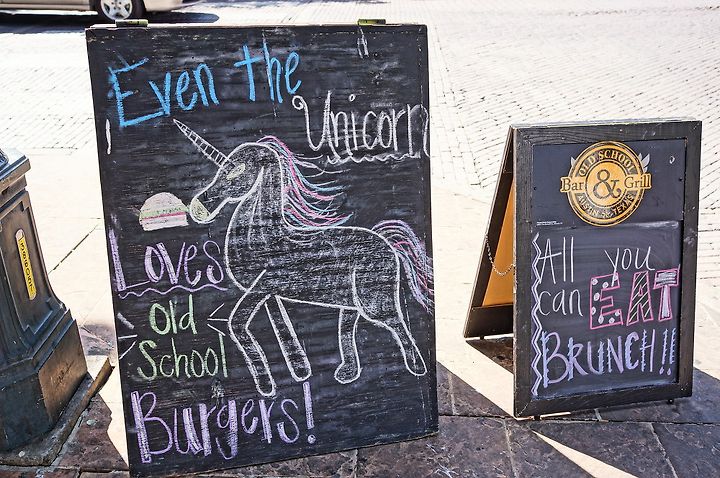 Even the
Unicorn
Loves
Old
School
Burgers!
OLD SCHOOL
Bar & Grill
AUSTIN TEXAS
All you
can EAT
BRUNCH!!